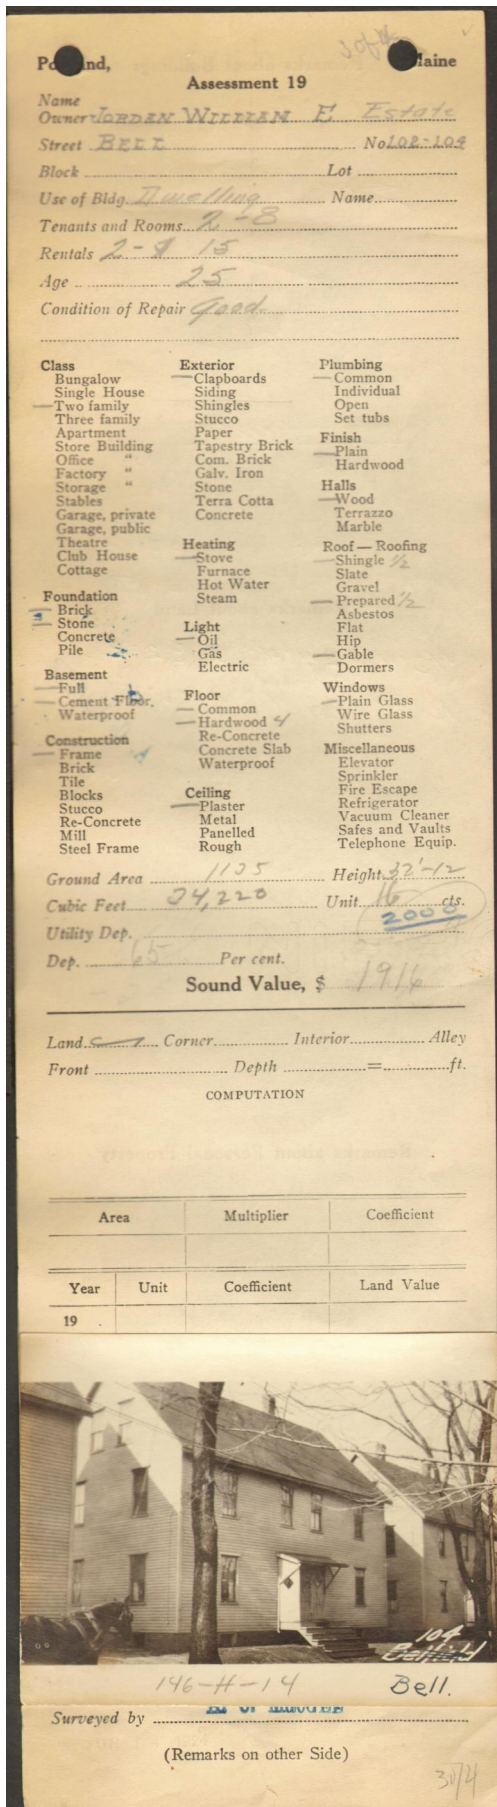 3 of 4
Portland, Maine
Assessment 19
Name
Owner JORDAN WILLIAM E Estate
Street BELL No 102-104
Block Lot
Use of Bldg. Dwelling Name
Tenants and Rooms 2-8
Rentals 2-$ 15
Age 25
Condition of Repair Good
Class
Bungalow
Single House
Two family
Three family
Apartment
Store Building
Office "
Factory "
Storage "
Stables
Garage, private
Garage, public
Theatre
Club House
Cottage
Foundation
Brick
Stone
Concrete
Pile
Basement
Full
Cement Floor.
Waterproof
Construction
Frame
Brick
Tile
Blocks
Stucco
Re-Concrete
Mill
Steel Frame
Exterior
Clapboards
Siding
Shingles
Stucco
Paper
Tapestry Brick
Com. Brick
Galv. Iron
Stone
Terra Cotta
Concrete
Heating
Stove
Furnace
Hot Water
Steam
Light
Oil
Gas
Electric
Floor
Common
Hardwood 4
Re-Concrete
Concrete Slab
Waterproof
Ceiling
Plaster
Metal
Panelled
Rough
Plumbing
Common
Individual
Open
Set tubs
Finish
Plain
Hardwood
Halls
Wood
Terrazzo
Marble
Roof — Roofing
Shingle 1/2
Slate
Gravel
Prepared 1/2
Asbestos
Flat
Hip
Gable
Dormers
Windows
Plain Glass
Wire Glass
Shutters
Miscellaneous
Elevator
Sprinkler
Fire Escape
Refrigerator
Vacuum Cleaner
Safes and Vaults
Telephone Equip.
Ground Area 1135 Height 32'-12
Cubic Feet 34,220 Unit 16 cts.
2000
Utility Dep.
Dep. 65 Per cent.
Sound Value, $ 1916
Land Corner Interior Alley
Front Depth = ft.
COMPUTATION
Area Multiplier Coefficient
Year Unit Coefficient Land Value
19
104
146-H-14 Bell.
Surveyed by
(Remarks on other Side)
30/4